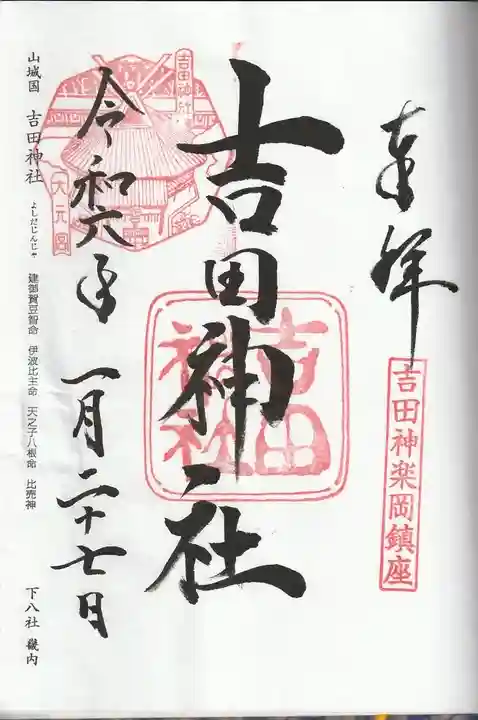 奉拝
吉田神楽岡鎮座
吉田神社
吉田
神社
令和六年一月二十七日
吉田神社
大元宮
山城国 吉田神社 よしだじんじゃ 建御賀豆智命 伊波比主命 天之子八根命 比売神 下八社 畿内